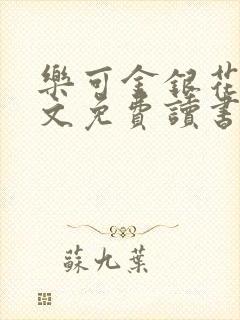 樂可金銀花
文免費讀書
蘇九葉